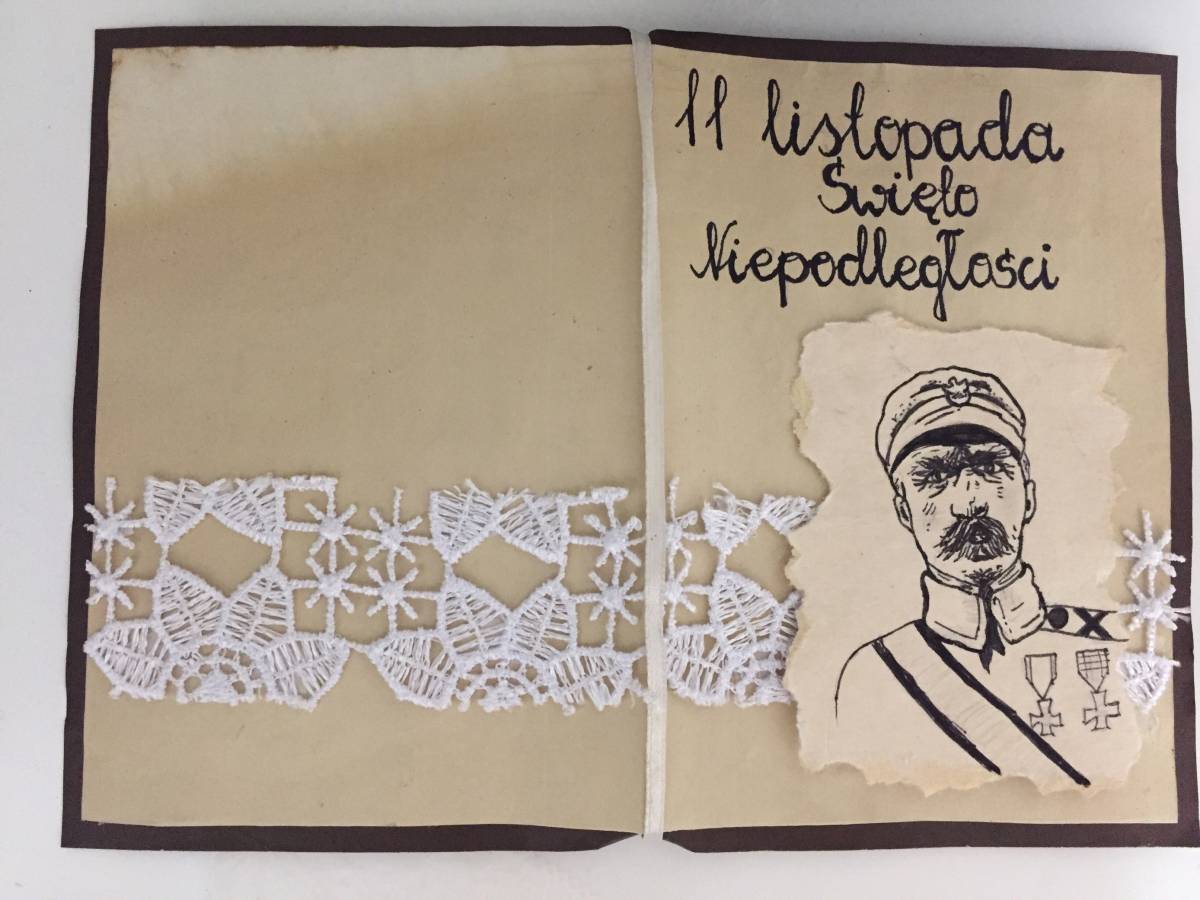 11 listopada
Święto
Niepodległości